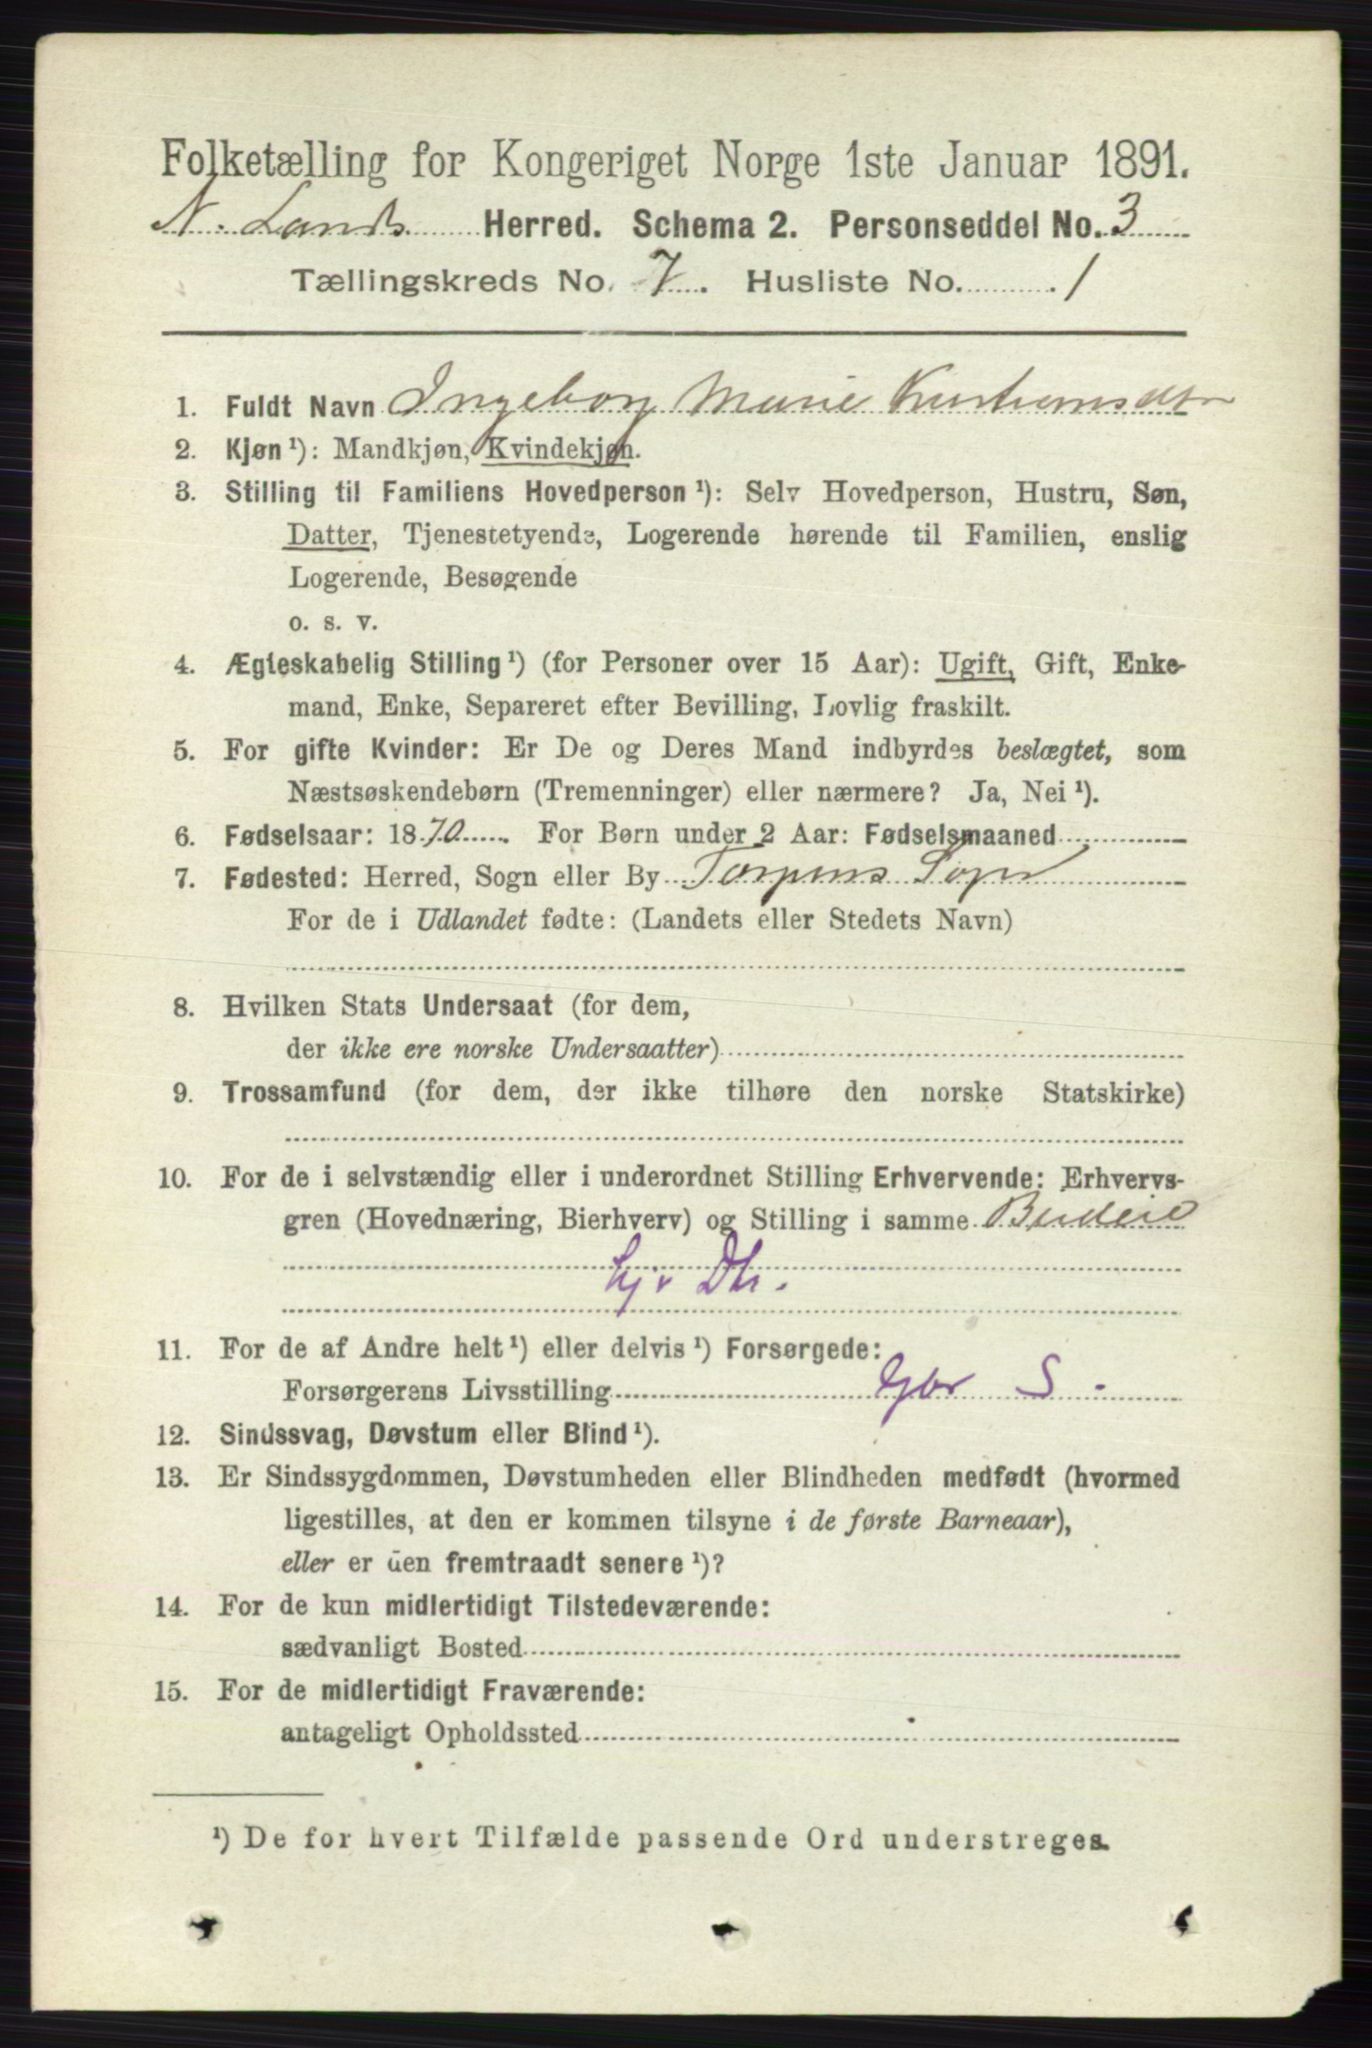 Folketælling for Kongeriget Norge 1ste Januar 1891.
N. Lands Herred. Schema 2. Personseddel No. 3
Tællingskreds No. 7. Husliste No. 1
1. Fuldt Navn Ingeborg Marie Kristiansdtr
2. Kjøn ¹): Mandkjøn, Kvindekjøn.
3. Stilling til Familiens Hovedperson ¹): Selv Hovedperson, Hustru, Søn,
Datter, Tjenestetyende, Logerende hørende til Familien, enslig
Logerende, Besøgende
o. s. v.
4. Ægteskabelig Stilling ¹) (for Personer over 15 Aar): Ugift, Gift, Enke-
mand, Enke, Separeret efter Bevilling, Lovlig fraskilt.
5. For gifte Kvinder: Er De og Deres Mand indbyrdes beslægtet, som
Næstsøskendebørn (Tremenninger) eller nærmere? Ja, Nei ¹).
6. Fødselsaar: 1870 For Børn under 2 Aar: Fødselsmaaned
7. Fødested: Herred, Sogn eller By Torpens Sogn
For de i Udlandet fødte: (Landets eller Stedets Navn)
8. Hvilken Stats Undersaat (for dem,
der ikke ere norske Undersaatter)
9. Trossamfund (for dem, der ikke tilhøre den norske Statskirke)
10. For de i selvstændig eller i underordnet Stilling Erhvervende: Erhvervs-
gren (Hovednæring, Bierhverv) og Stilling i samme Budeie
Dtr.
11. For de af Andre helt ¹) eller delvis ¹) Forsørgede:
Forsørgerens Livsstilling Gbr S.
12. Sindssvag, Døvstum eller Blind ¹).
13. Er Sindssygdommen, Døvstumheden eller Blindheden medfødt (hvormed
ligestilles, at den er kommen tilsyne i de første Barneaar),
eller er den fremtraadt senere ¹)?
14. For de kun midlertidigt Tilstedeværende:
sædvanligt Bosted
15. For de midlertidigt Fraværende:
antageligt Opholdssted
¹) De for hvert Tilfælde passende Ord understreges.